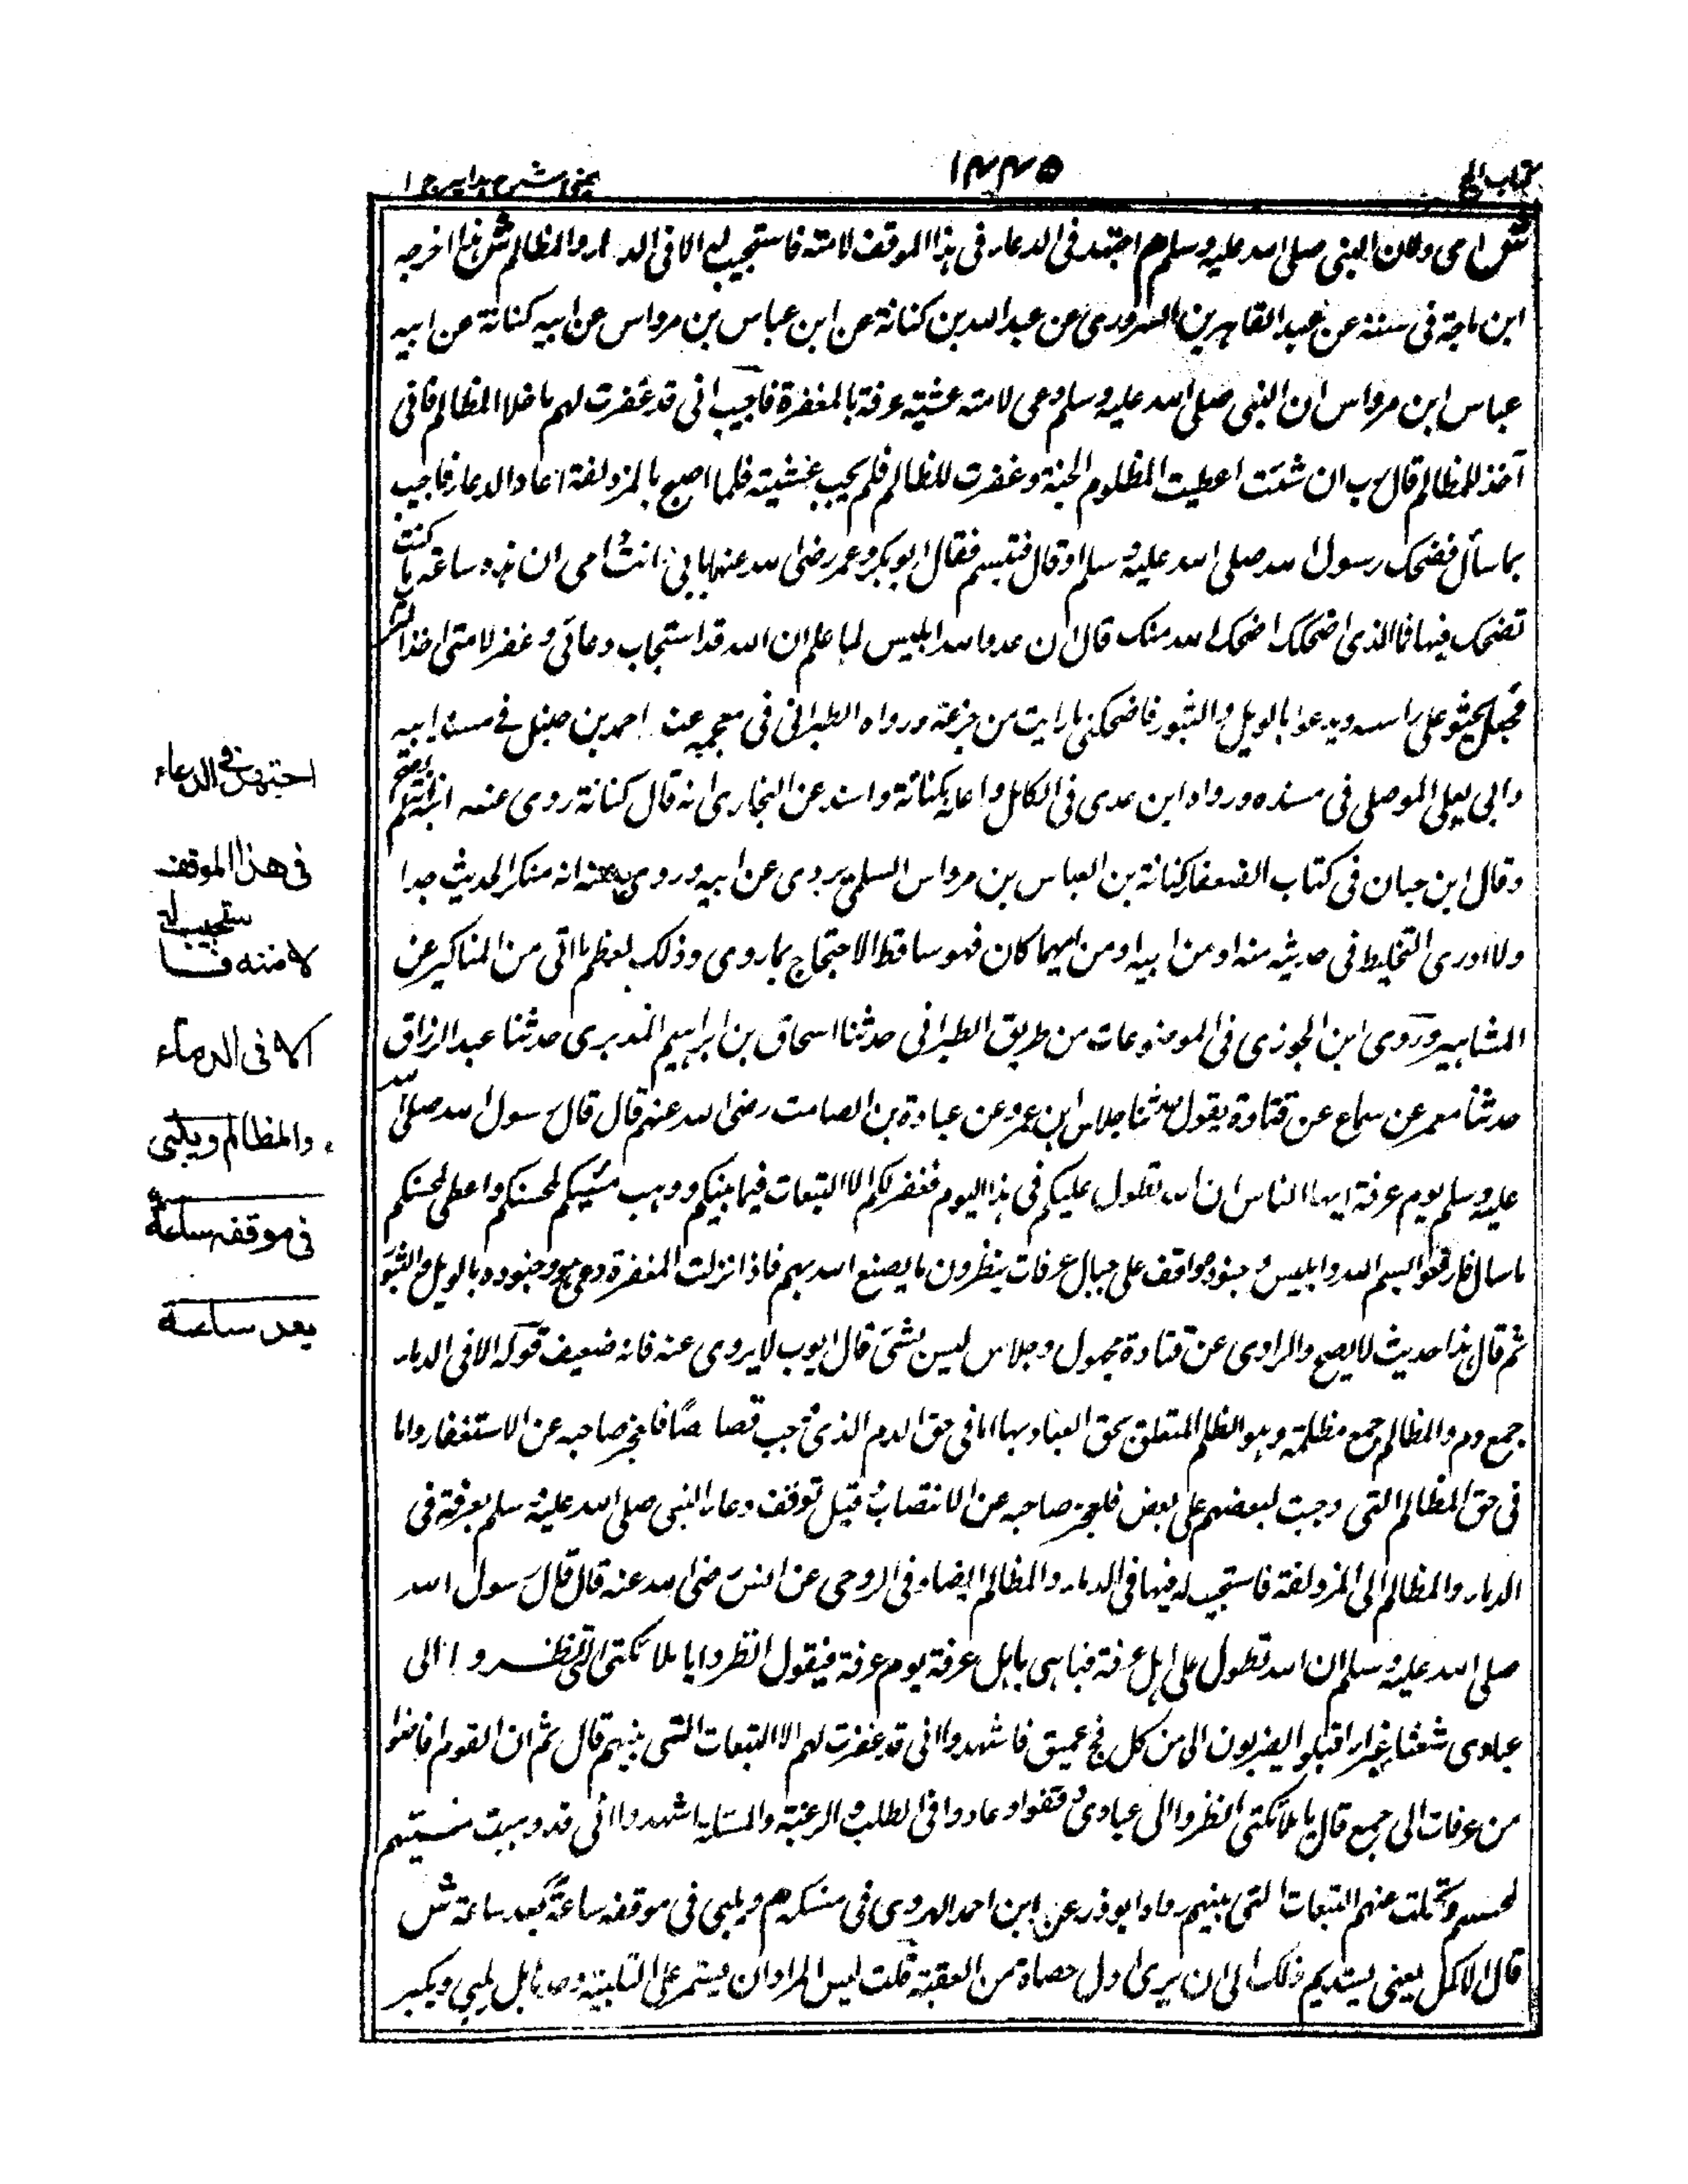 كتاب الحج
١٤٤٥
عينى شرح هدايه ج ١
ش اى ولان النبى صلى الله عليه وسلم م اجتهد فى الدعاء فى هذا الموقف لامته فاستجيب له الا فى الدماء والمظالم ش هذا اخرجه
ابن ماجة فى سننه عن عبد القاهر بن السرورى عن عبد الله بن كنانة عن ابن عباس بن مرداس عن ابيه كنانة عن ابيه
عباس ابن مرداس ان النبى صلى الله عليه وسلم دعى لامته عشية عرفة بالمغفرة فاجيب انى قد غفرت لهم ما خلا المظالم فانى
آخذ للمظالم قال رب ان شئت اعطيت المظلوم الجنة وغفرت للظالم فلم يجب عشيته فلما اصبح بالمزدلفة اعاد الدعاء فاجيب
بما سأل فضحك رسول الله صلى الله عليه وسلم او قال فتبسم فقال ابو بكر وعمر رضى الله عنهما بابى انت وامى ان هذه ساعة ما كنت
تضحك فيها فما الذى اضحكك اضحك الله سنك قال ان عدو الله ابليس لما علم ان الله قد استجاب دعائى وغفر لامتى اخذ التراب
فجعل يحثو على راسه ويدعو بالويل والثبور فاضحكنى ما رايت من جزعه ورواه الطبرانى فى معجمه عنه احمد بن حنبل فى مسند ابيه
وابى يعلى الموصلى فى مسنده ورواه ابن عدى فى الكامل واعله بكنانة واسند عن البخارى انه قال كنانة روى عنه ابنه لم يصح
وقال ابن حبان فى كتاب الضعفاء كنانة بن العباس بن مرداس السلمى يروى عن ابيه وروى عنه ابنه منكر الحديث جدا
ولا ادرى التخليط فى حديثه منه او من ابيه او من ايهما كان فهو ساقط الاحتجاج بما روى وذلك لعظم ما اتى من المناكير عن
المشاهير وروى ابن الجوزى فى الموضوعات من طريق الطبرانى حدثنا اسحاق بن ابراهيم الدبرى حدثنا عبد الرزاق
حدثنا معمر عن سماع عن قتادة يقول حدثنا جلاس ابن عمرو عن عبادة بن الصامت رضى الله عنهم قال قال رسول الله صلى الله
عليه وسلم يوم عرفة ايها الناس ان الله تطول عليكم فى هذا اليوم فغفر لكم الا التبعات فيما بينكم ووهب مسيئكم لمحسنكم واعطى لمحسنكم
ما سال فارفعوا بسم الله وابليس وجنوده مواقف على جبال عرفات ينظرون ما يصنع الله بهم فاذا نزلت المغفرة دعى هو وجنوده بالويل والثبور
ثم قال هذا حديث لا يصح والراوى عن قتادة مجهول وجلاس ليس بشئ قال ايوب لا يروى عنه فانه ضعيف قوله الا فى الدماء
جمع دم والمظالم جمع مظلمة وهو الظلم المتعلق بحق العباد بها اما فى حق الدم الذى يجب قصا صًا فلعجز صاحبه عن الاستغفار واما
فى حق المظالم التى وجبت لبعضهم على بعض فلعجز صاحبه عن الانتصاب وقيل توقف دعاء النبى صلى الله عليه وسلم بعرفة فى
الدماء والمظالم الى المزدلفة فاستجيب له فيها فى الدماء والمظالم ايضا وفى الروحى عن انس رضى الله عنه قال قال رسول الله
صلى الله عليه وسلم ان الله تطول على اهل عرفة فباهى باهل عرفة يوم عرفة فيقول انظروا يا ملائكتى انظروا الى
عبادى شعثا غبرا اقبلوا يضربون الى من كل فج عميق فاشهدوا انى قد غفرت لهم الا التبعات التى بينهم قال ثم ان القوم افاضوا
من عرفات الى جمع قال يا ملائكتى انظروا الى عبادى وقفوا وعادوا فى الطلب والرغبة والمسئالة اشهدوا انى قد وهبت مسيئهم
لمحسنهم وتحملت عنهم التبعات التى بينهم رواه ابو ذر عن ابن احمد الهروى فى منسكه م ويلبى فى موقفه ساعة بعد ساعة ش
قال الاكمل يعنى يستديم ذلك الى ان يرمى اول حصاة من العقبة قلت ليس المراد ان يستمر على التلبية وحدها بل يلبى ويكبر
اجتهد فى الدعاء
فى هذا الموقف
لامته فاستجيب له
الا فى الدماء
والمظالم ويلبى
فى موقفه ساعة
بعد ساعة